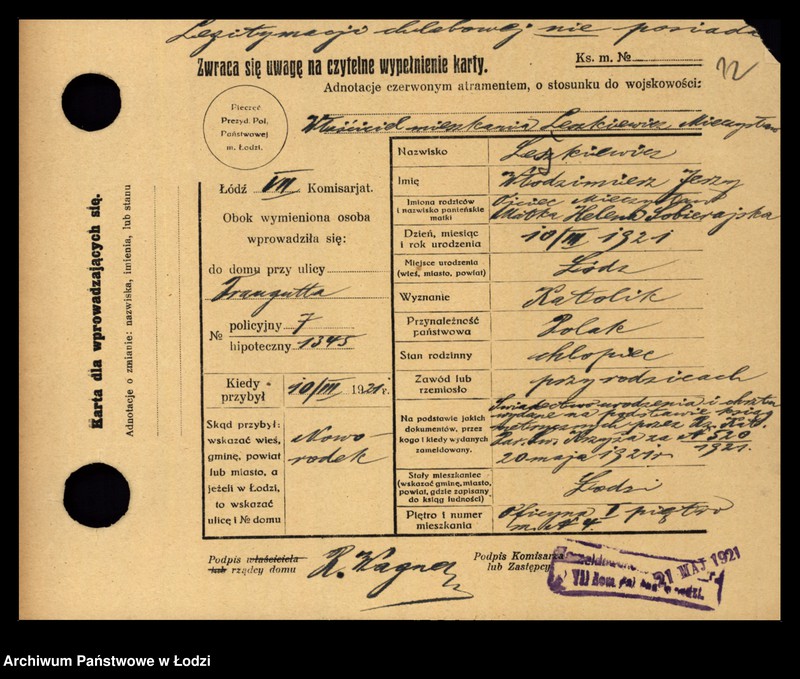 Legitymacji chlebowej nie posiada
Zwraca się uwagę na czytelne wypełnienie karty.
Ks. m. №
Adnotacje czerwonym atramentem, o stosunku do wojskowości:
Pieczęć
Prezyd. Pol.
Państwowej
m. Łodzi.
Właściciel mieszkania Leszkiewicz Mieczysław
Łódź VII Komisarjat.
Obok wymieniona osoba
wprowadziła się:
do domu przy ulicy
Traugutta
№ policyjny 7
hipoteczny 1345
Kiedy przybył 10/III 1921 r.
Skąd przybył:
wskazać wieś,
gminę, powiat
lub miasto, a
jeżeli w Łodzi,
to wskazać
ulicę i № domu
Nowo-
rodek
Nazwisko Leszkiewicz
Imię Włodzimierz Jerzy
Imiona rodziców
i nazwisko panieńskie
matki
Ojciec Mieczysław
Matka Helena Sobierajska
Dzień, miesiąc
i rok urodzenia
10/III 1921
Miejsce urodzenia
(wieś, miasto, powiat)
Łódz
Wyznanie Katolik
Przynależność
państwowa
Polak
Stan rodzinny chłopiec
Zawód lub
rzemiosło
przy rodzicach
Na podstawie jakich
dokumentów, przez
kogo i kiedy wydanych
zameldowany.
Świadectwo urodzenia i chrztu
wydane na podstawie ksiąg
metrycznych przez Rz. Kat.
Par. św. Krzyża za № 520
20 maja 1921 r 1921.
Stały mieszkaniec
(wskazać gminę, miasto,
powiat, gdzie zapisany
do ksiąg ludności)
Łodzi
Piętro i numer
mieszkania
Oficyna I piętro
m. № 4.
Podpis właściciela
lub rządcy domu
R. Wagner
Podpis Komisarza
lub Zastępcy
21 MAJ 1921
VII Kom.
Karta dla wprowadzających się.
Adnotacje o zmianie: nazwiska, imienia, lub stanu
Archiwum Państwowe w Łodzi